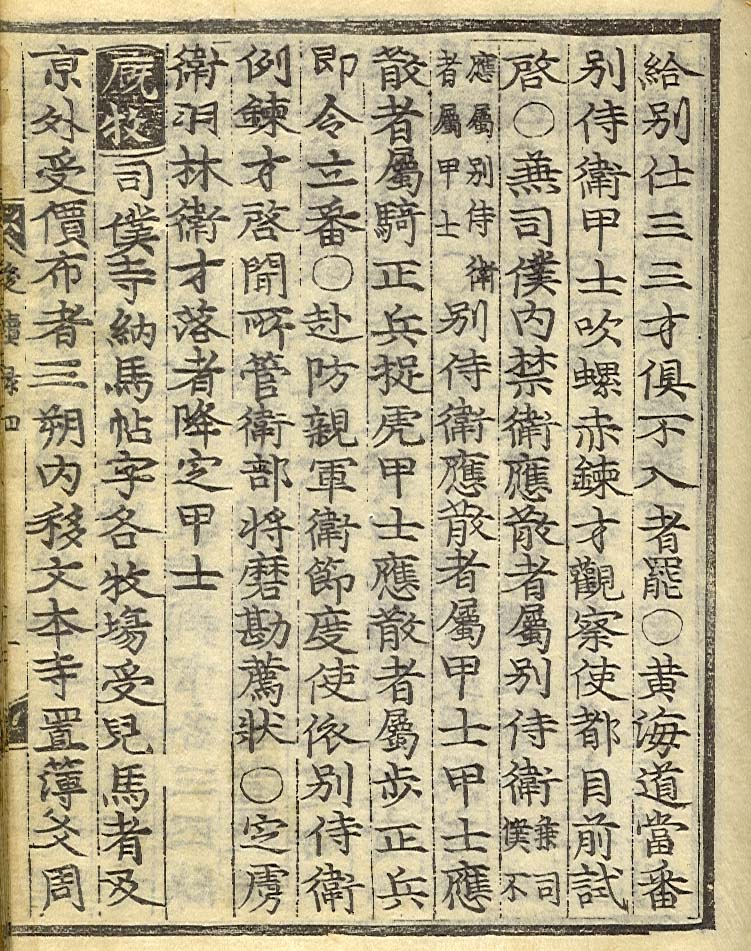 給別仕三三才俱不入者罷○黃海道當番
別侍衛甲士吹螺赤鍊才觀察使都目前試
啓○兼司僕內禁衛應散者屬別侍衛兼司僕不
應屬別侍衛者屬甲士別侍衛應散者屬甲士甲士應
散者屬騎正兵捉虎甲士應散者屬步正兵
即令立番○赴防親軍衛節度使依別侍衛
例鍊才啓聞所管衛部將磨勘薦狀○定虜
衛羽林衛才落者降定甲士
廐牧司僕寺納馬帖字各牧塲受兒馬者及
京外受價布者三朔內移文本寺置簿父周
後續錄四